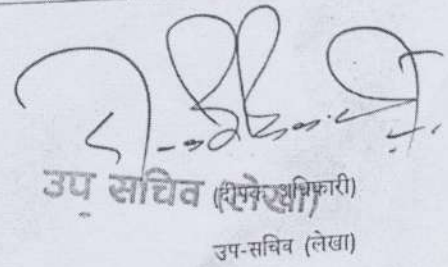 उप सचिव (लेखा)
(दीपक अधिकारी)
उप-सचिव (लेखा)